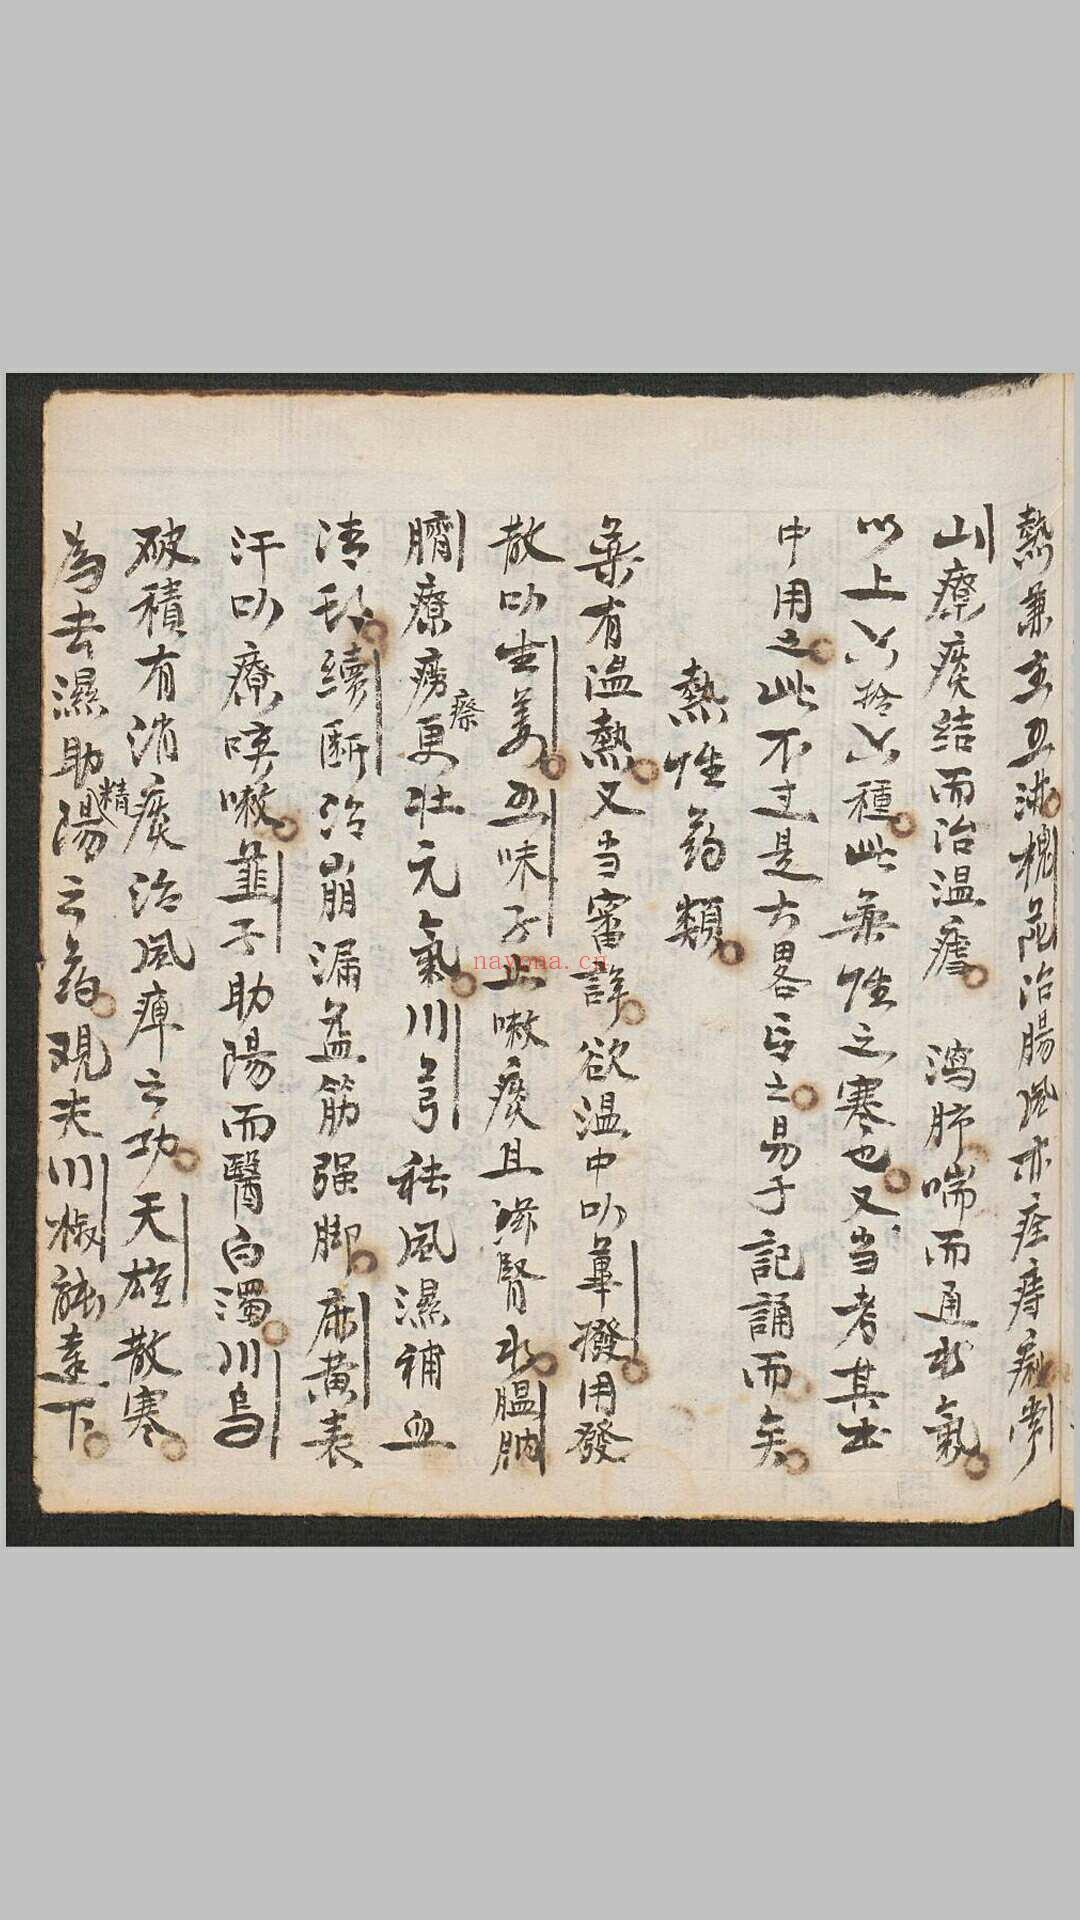 熱兼主五淋槐花治腸風亦痊痔痢常
山療痰结而治温瘧瀉肺喘而通水氣
以上六拾六種此藥性之寒也又当考其出
中用之此不过是大畧言之易于記誦而矣
熱性药類
藥有温熱又当審詳欲温中以蓽撥用發
散以生姜五味子止嗽痰且滋腎水腽肭
臍療癆瘵更壮元氣川芎祛風濕補血
清頭續断治崩漏益筋强脚麻黄表
汗以療咳嗽韮子助陽而醫白濁川烏
破積有消痰治風痺之功天雄散寒
為去濕助精陽之药观夫川椒能達下
nayona.cn